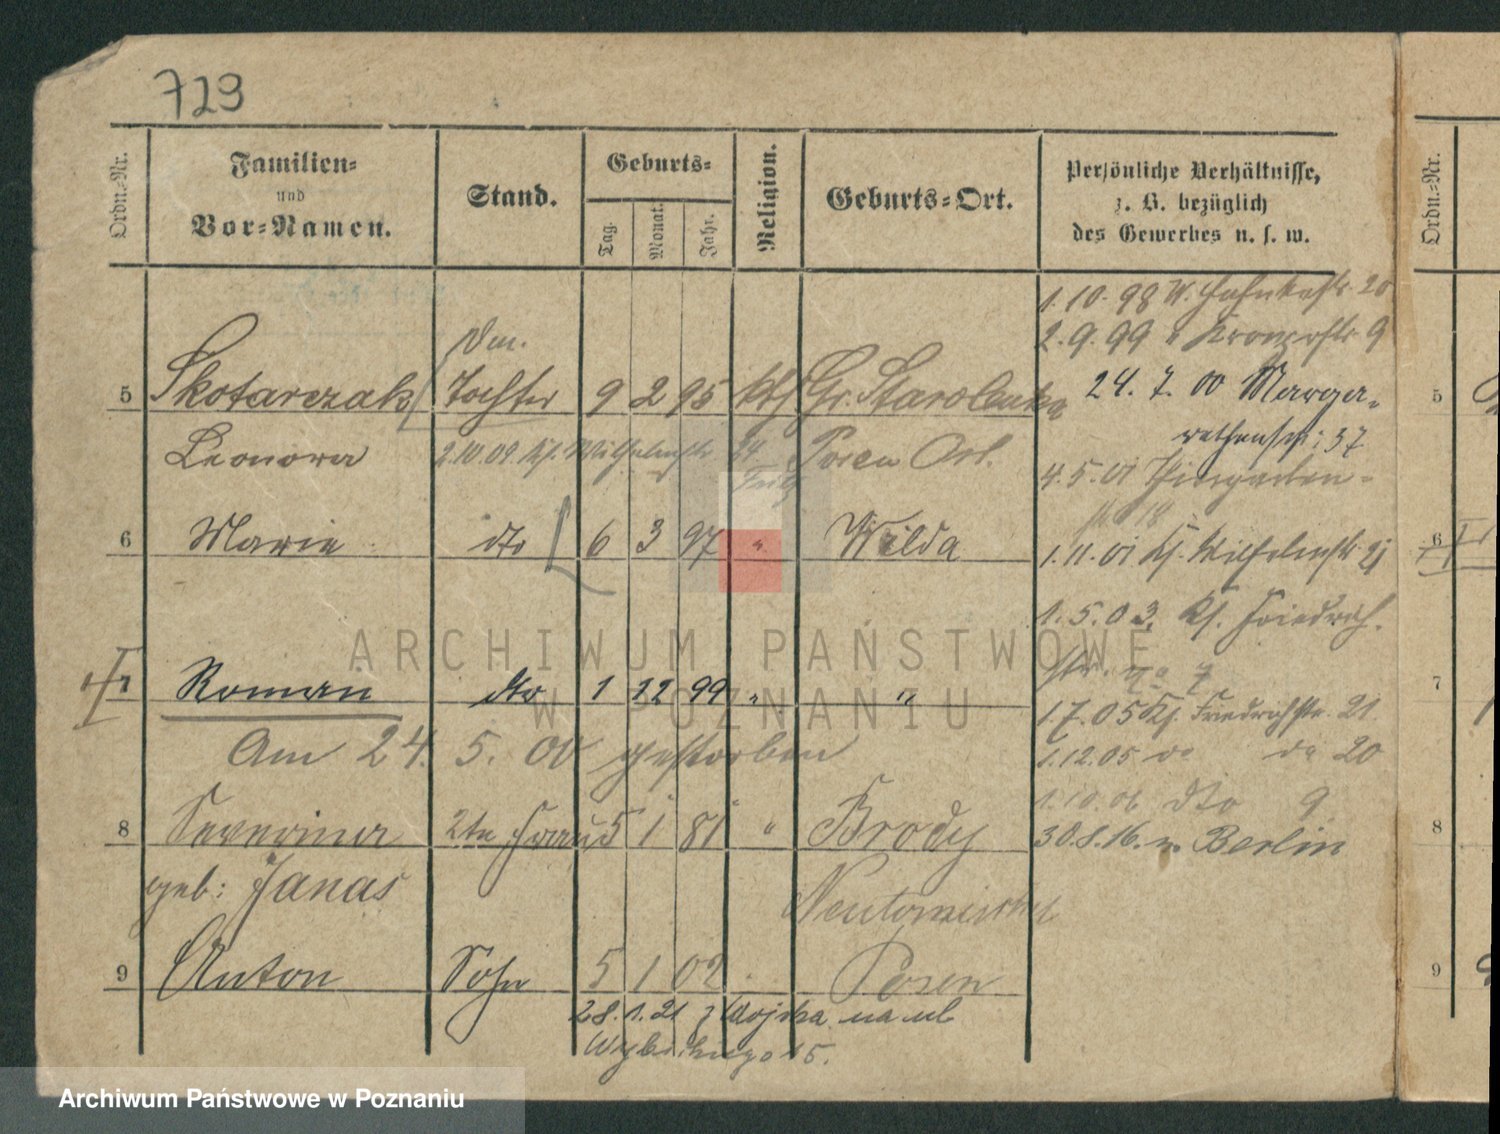 723
Ordn.-Nr.
Familien-
und
Vor-Namen.
Stand.
Geburts-
Tag.
Monat.
Jahr.
Religion.
Geburts-Ort.
Persönliche Verhältnisse,
z. B. bezüglich
des Gewerbes u. s. w.
Ordn.-Nr.
1.10.98 W. 20
2.9.99 " Kronprstr. 9
5 Skotarczak Tochter 9 2 95 kth Gr. Starolenka 24. 7. 00 Marga-
5
rethenstr. 37
Leonora 2.10.09. Ks. Wilhelmstr. 24 Posen Ost.
4.5.01 Thiergarten-
str. 18
6 Marie dto 6 3 97 " Wilda 1.11.01 Ks. Wilhelmstr. 21
6
1.5.03. Ks. Friedrich-
str. No 7
7 Roman dto 1 12 99 " "
7
1.7.05 Ks. Friedrichstr. 21
Am 24. 5. 00 gestorben
1.12.05 do do 20
1.10.06 dto 9
8 Severina 2te Frau 5 1 81 " Brody 30.8.16. n. Berlin
8
geb: Janas Neutomischel
9 Anton Sohn 5 1 02 Posen
9
28.1.21 z Wojska na ul
15.
ARCHIWUM PAŃSTWOWE
W POZNANIU
Archiwum Państwowe w Poznaniu